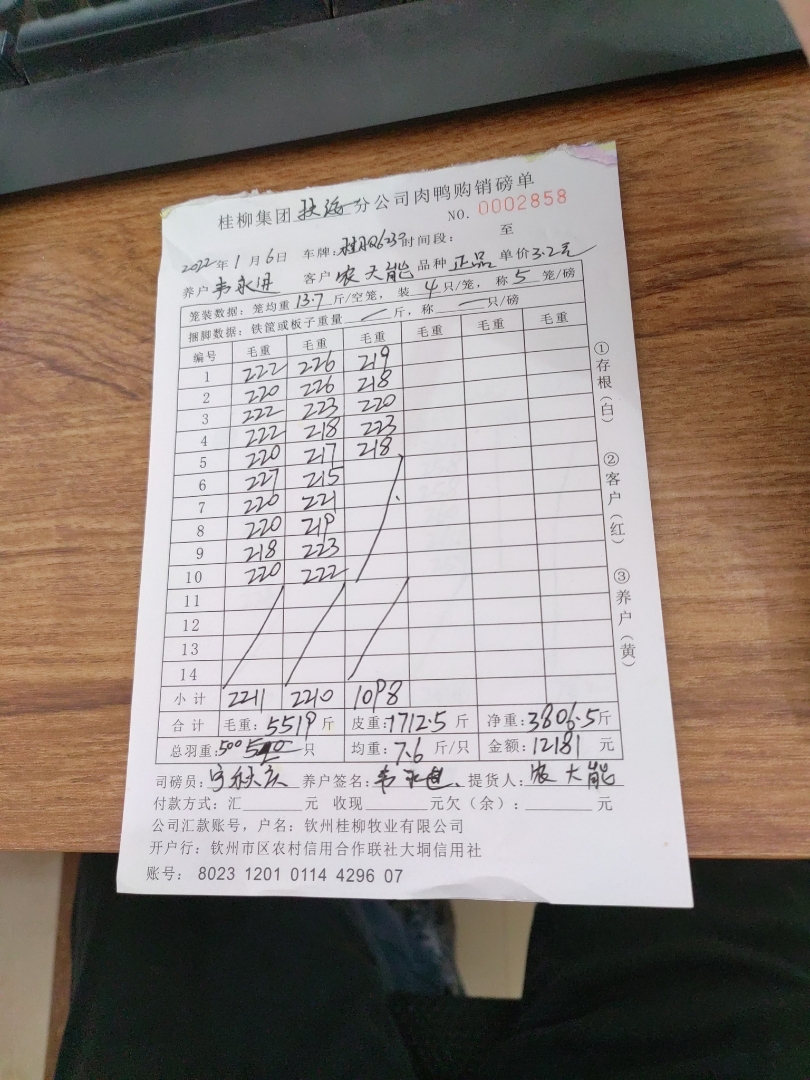 桂柳集团 扶绥 分公司肉鸭购销磅单
NO. 0002858
2022年1月6日 车牌: 时间段: 至
养户 客户 农大能 品种 正品 单价3.2元
笼装数据: 笼均重 13.7 斤/空笼, 装 4 只/笼, 称 5 笼/磅
捆脚数据: 铁筐或板子重量 斤, 称 只/磅
编号 毛重 毛重 毛重 毛重 毛重 毛重
1 222 226 219
2 220 226 218
3 222 223 220
4 222 218 223
5 220 217 218
6 227 215
7 220 221
8 220 219
9 218 223
10 220 222
11
12
13
14
小计 2211 2210 1098
合计 毛重: 5519 斤 皮重: 1712.5 斤 净重: 3806.5斤
总羽重: 500 只 均重: 7.6 斤/只 金额: 12181 元
司磅员: 养户签名: 提货人: 农大能
付款方式: 汇 元 收现 元欠(余): 元
公司汇款账号, 户名: 钦州桂柳牧业有限公司
开户行: 钦州市区农村信用合作联社大垌信用社
账号: 8023 1201 0114 4296 07
①存根(白)
②客户(红)
③养户(黄)